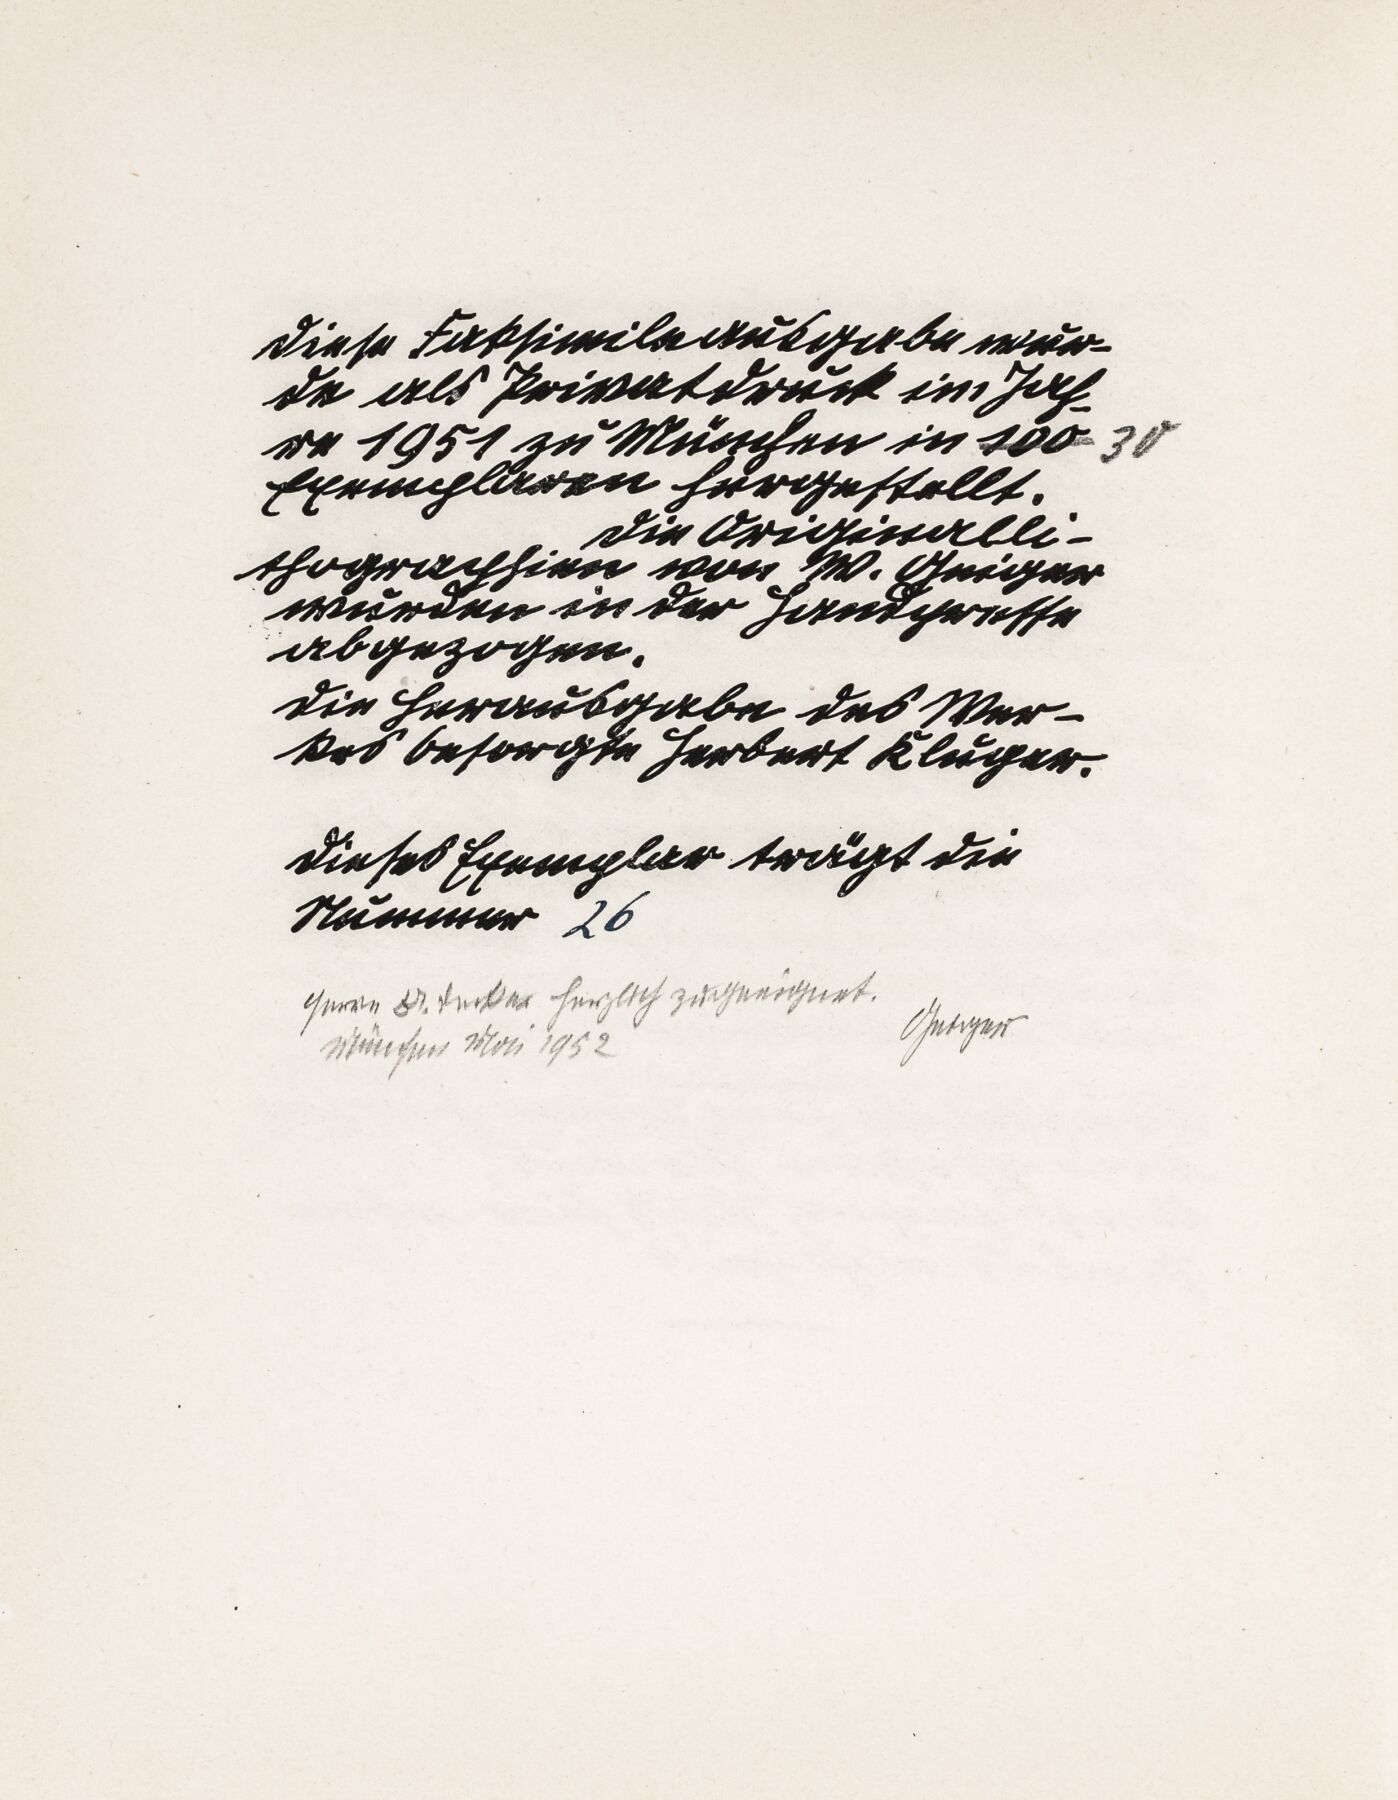 Diese Faksimileausgabe wur-
de als Privatdruck im Jah-
re 1951 zu München in 100 30
Exemplaren hergestellt.
Die Originalli-
thographien von W. Geiger
wurden in der Handpresse
abgezogen.
Die Herausgabe des Wer-
kes besorgte Herbert Kluger.
Dieses Exemplar trägt die
Nummer 26
Herrn herzlich zugeeignet.
Geiger
München Mai 1952